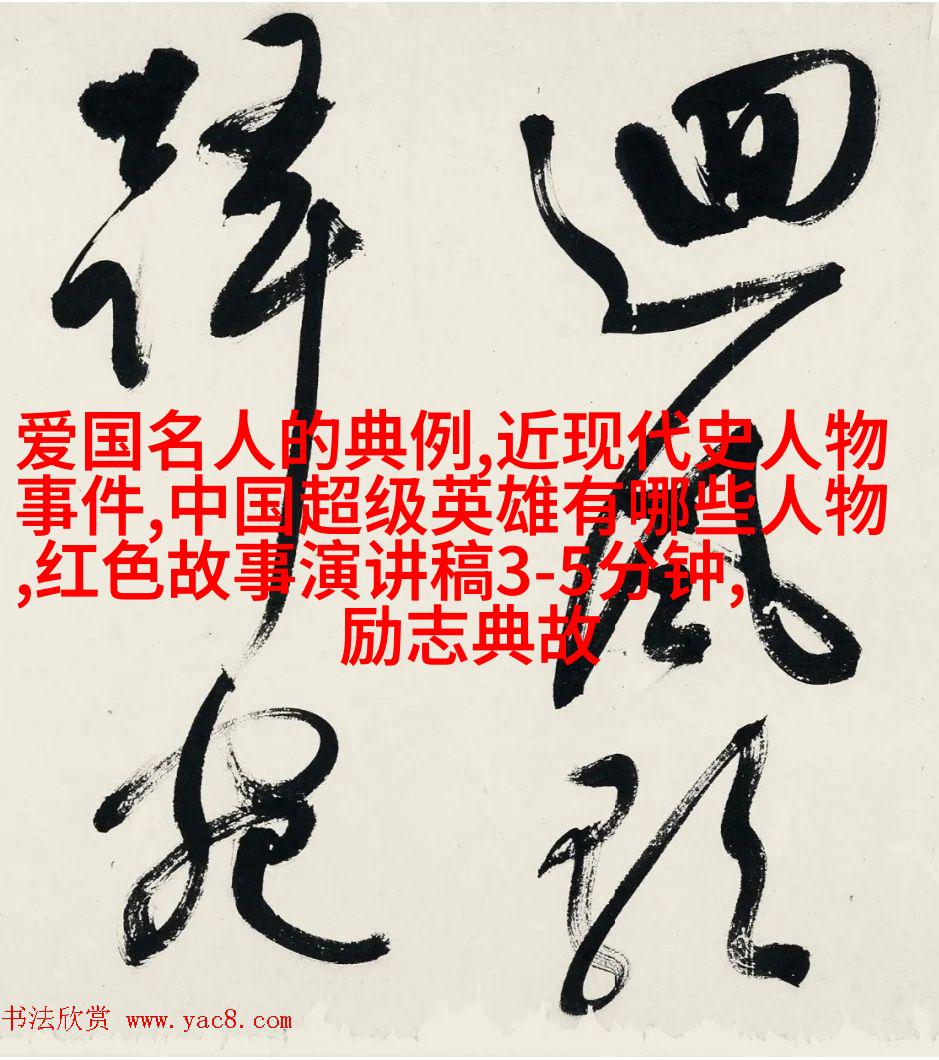 迴風
爱国名人的典例,近现代史人物
事件,中国超级英雄有哪些人物
,红色故事演讲稿3-5分钟,
励志典故
书法欣赏 www.yac8.com